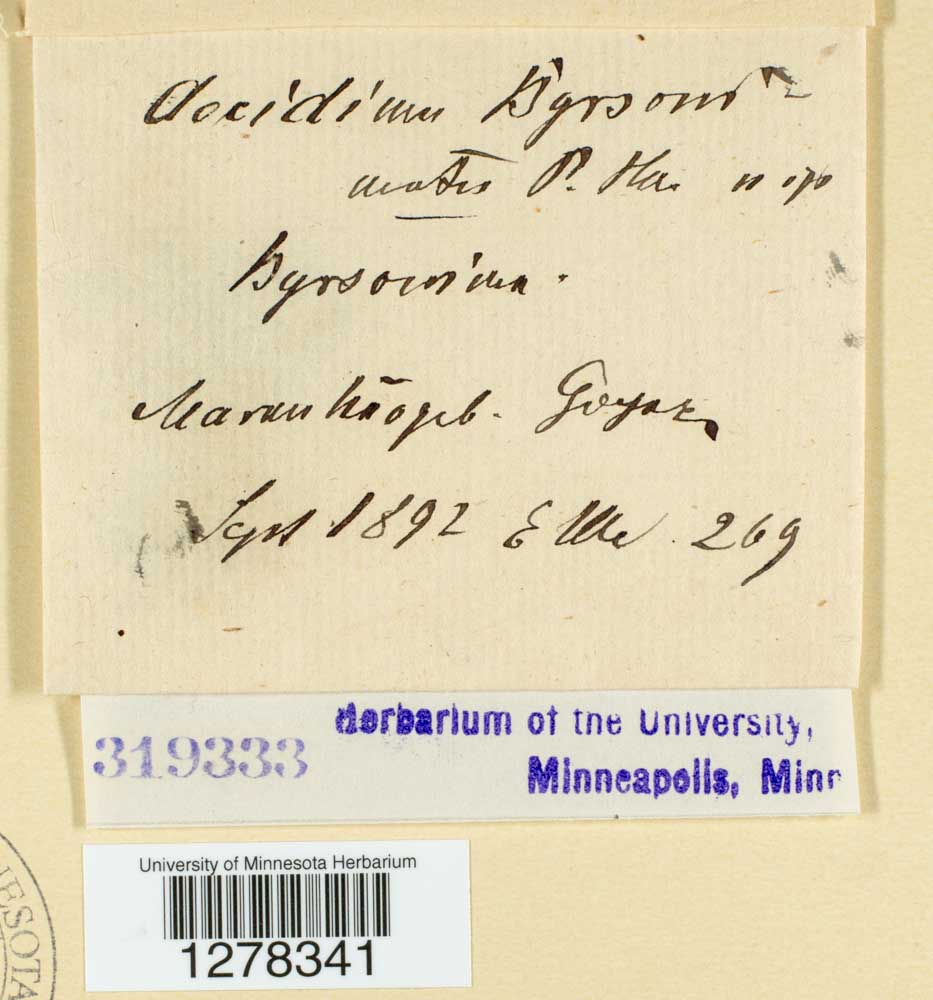 Aecidium Byrsoni
matis P. Hen.
Byrsonima.
Maranhãogeb. Goyaz
Sept 1892 E Ule. 269
319333
Herbarium of the University,
Minneapolis, Minn
University of Minnesota Herbarium
1278341
NESOTA